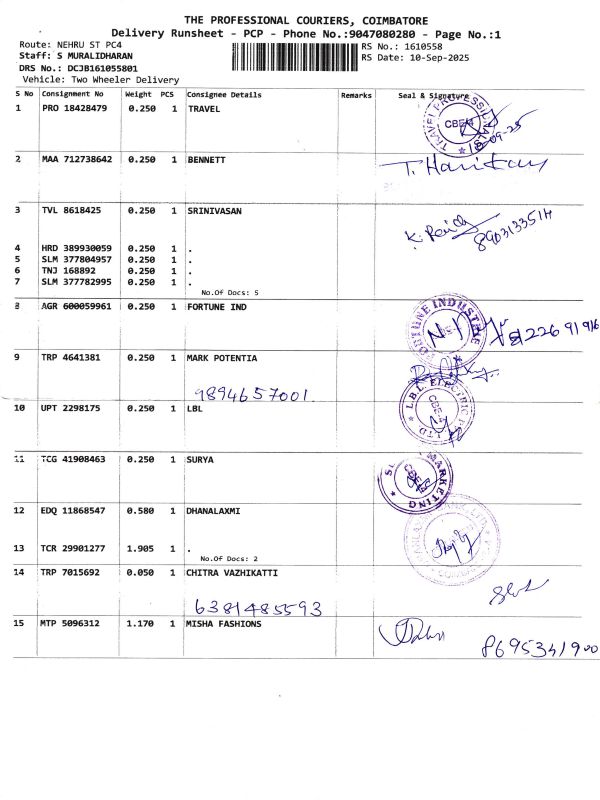 THE PROFESSIONAL COURIERS, COIMBATORE
Delivery Runsheet - PCP - Phone No.:9047080280 - Page No.:1
Route: NEHRU ST PC4 RS No.: 1610558
Staff: S MURALIDHARAN RS Date: 10-Sep-2025
DRS No.: DCJB161055801
Vehicle: Two Wheeler Delivery
S No Consignment No Weight PCS Consignee Details Remarks Seal & Signature
1 PRO 18428479 0.250 1 TRAVEL
TRAVEL PROFESSIONALS CBE-4
2 MAA 712738642 0.250 1 BENNETT
T. Harikay
3 TVL 8618425 0.250 1 SRINIVASAN
8903133514
4 HRD 389930059 0.250 1 .
5 SLM 377804957 0.250 1 .
6 TNJ 168892 0.250 1 .
7 SLM 377782995 0.250 1 .
No.Of Docs: 5
8 AGR 600059961 0.250 1 FORTUNE IND
FORTUNE INDUSTRIE
9 TRP 4641381 0.250 1 MARK POTENTIA
9894657001.
10 UPT 2298175 0.250 1 LBL
L.B.L. ELECTRIC LTD CBE-4
11 TCG 41908463 0.250 1 SURYA
MARKETING
12 EDQ 11868547 0.580 1 DHANALAXMI
13 TCR 29901277 1.905 1 .
No.Of Docs: 2
14 TRP 7015692 0.050 1 CHITRA VAZHIKATTI
6381485593
15 MTP 5096312 1.170 1 MISHA FASHIONS
8695341900